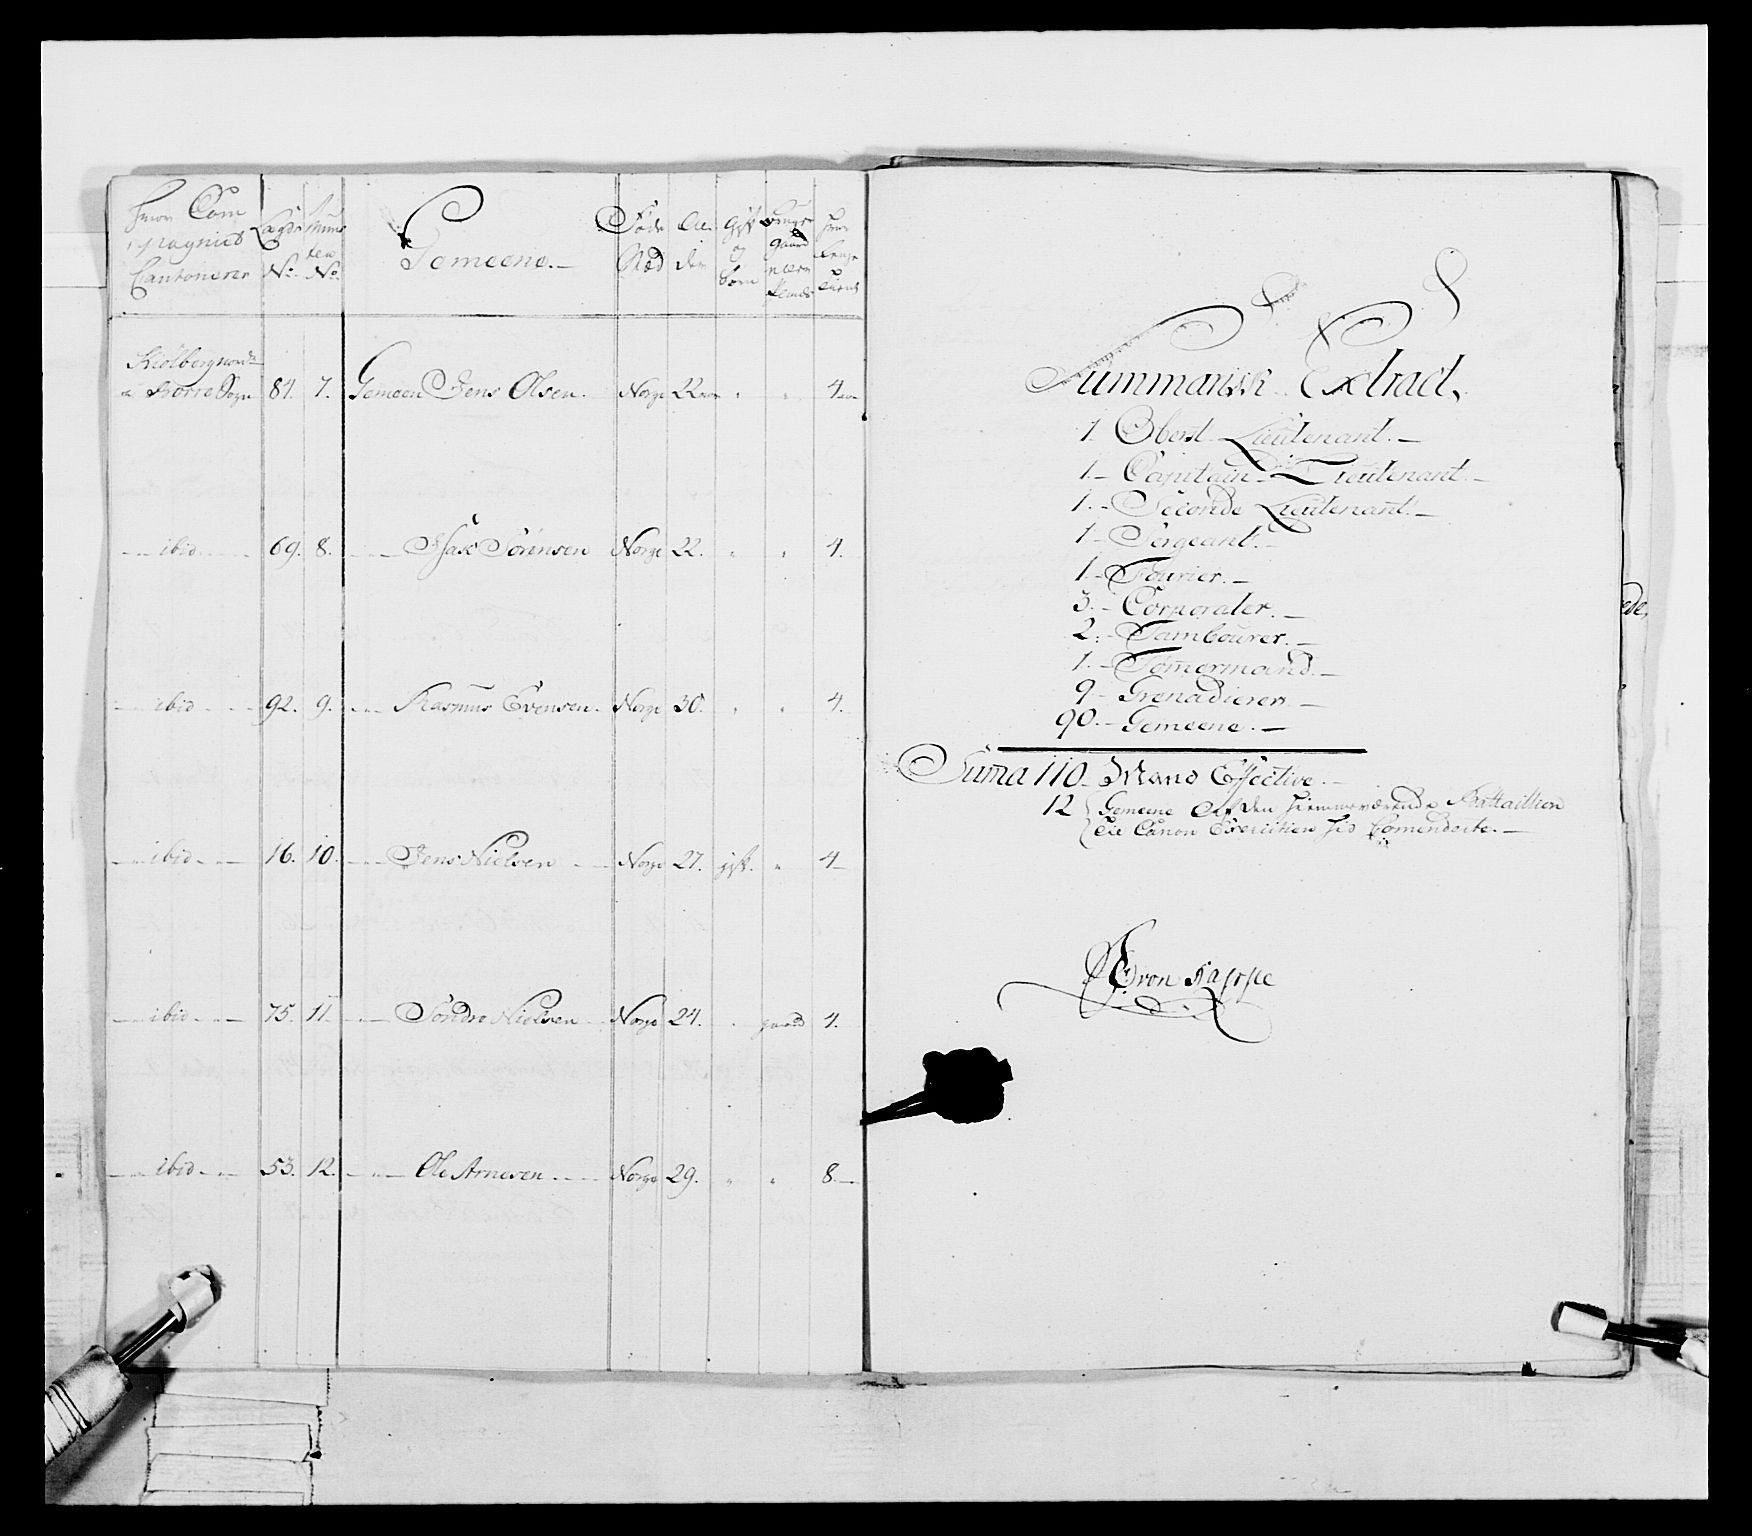 hvor Com
pagniet
Cantonerer
Lægds
No.
Num
No.
Gemeene.
Føde
Stæd
Al
der
Gift
og
børn
Gaard
4
Sogn 84. 7. Gemeen Jens Olsen. Norge 22 4
ibid 69. 8. Isac Sørensen Norge 22. 4.
ibid 92. 9. Rasmus Evensen. Norge 30. 4.
ibid 16. 10. Jens Nielsen Norge 27. gift. 4
ibid 75. 11 Søndre Nielsen Norge 24. gaard 4.
ibid 53. 12. Ole Arnesen Norge 29. 8.
Summarisk Extract,
1. Oberst Lieutenant.
1. Capitain Lieutenant.
1. Seconde Lieutenant.
1 Sergeant.
1. Fourier.
3. Corporaler.
2. Tambourer.
1. Tømermand.
9 Grenadierer
90. Gemeene.
Suma 110 Mand Effective.
12 Gemeene Af den hiemmeværende Battaillion
til Canon Exercitien hid Comenderte.
von Kappe